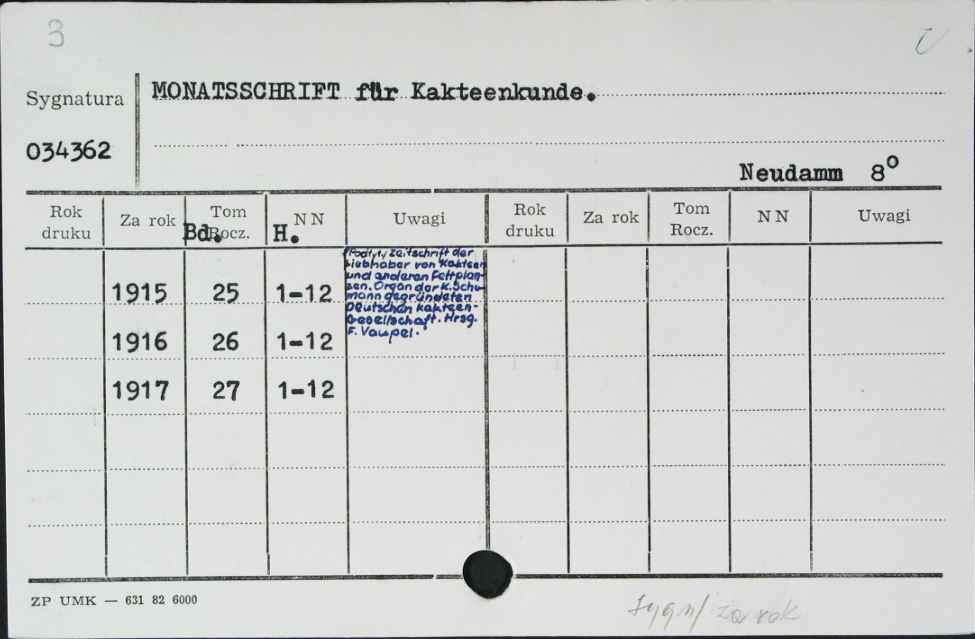 3
Sygnatura
MONATSSCHRIFT für Kakteenkunde.
034362
Neudamm 8°
Rok druku Za rok Tom Rocz. Bd. NN H. Uwagi Rok druku Za rok Tom Rocz. NN Uwagi
/Podtyt/ Zeitschrift der
Liebhaber von Kakteen
und anderen Fettplan-
zen. Organ der K. Schu-
mann gegründeten
Deutschen Kakteen-
Gesellschaft. Hrsg.
F. Vaupel.
1915 25 1-12
1916 26 1-12
1917 27 1-12
ZP UMK — 631 82 6000
Sygn/ za rok